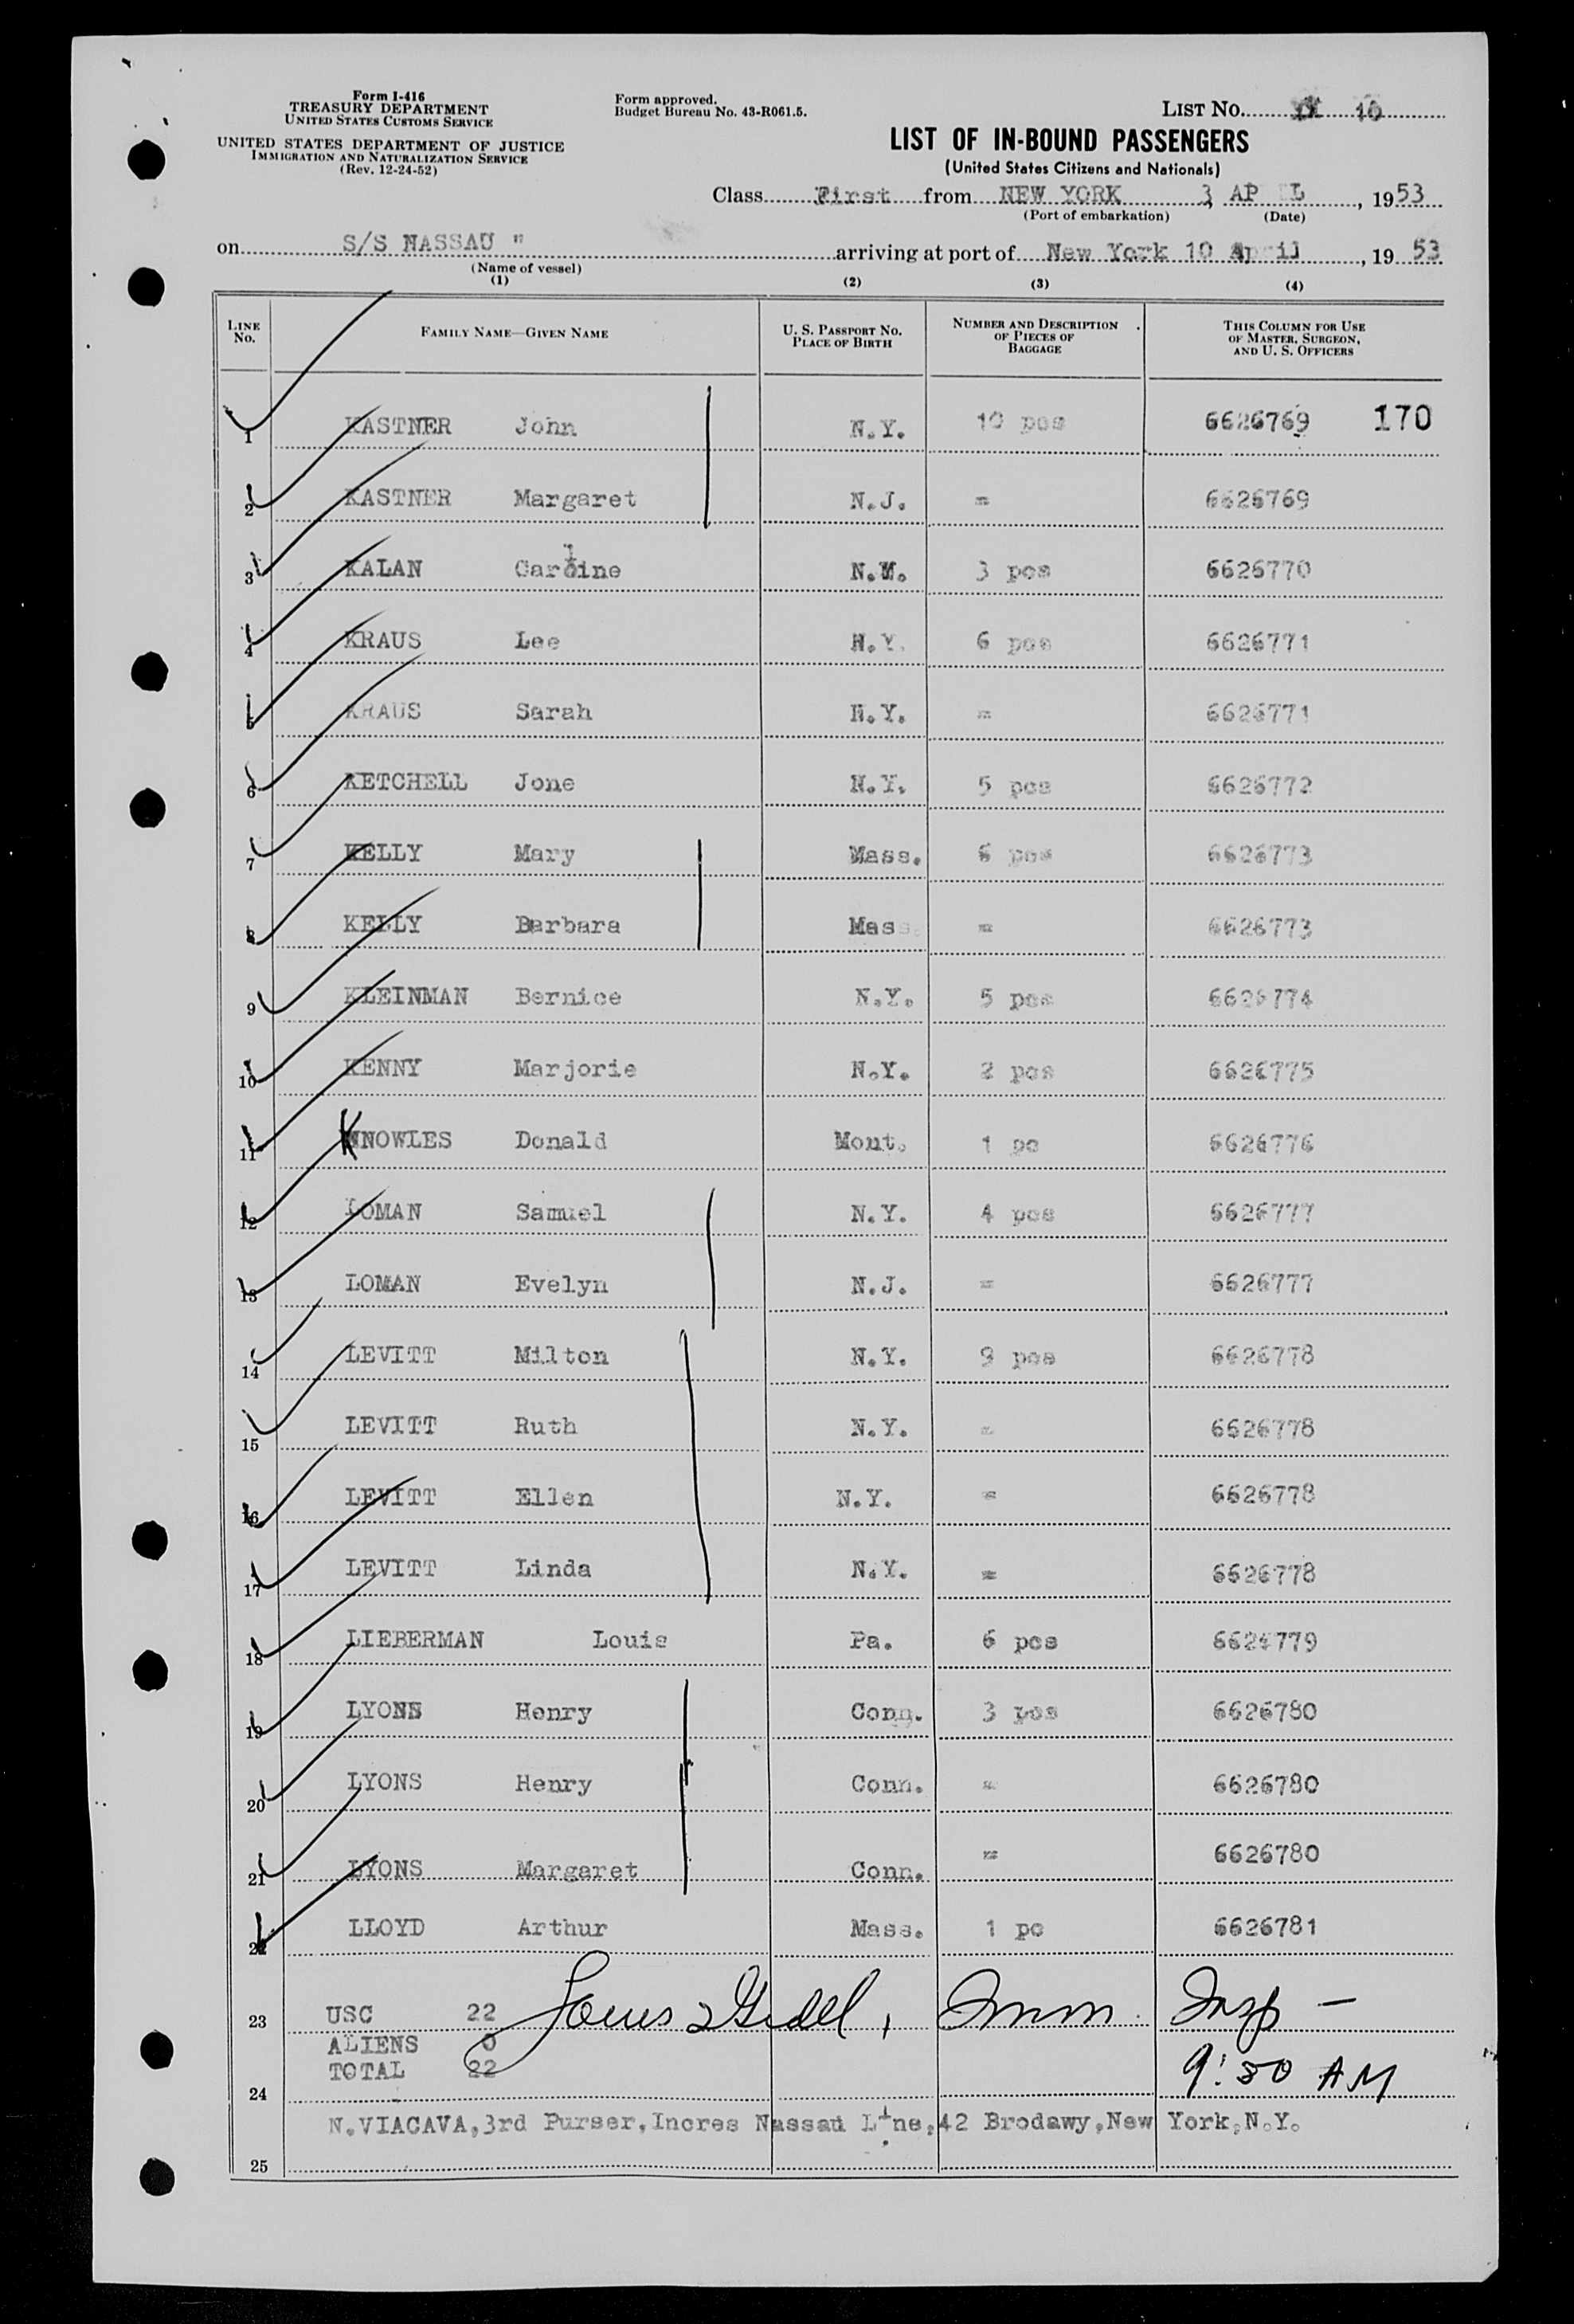 Form I-416
TREASURY DEPARTMENT
UNITED STATES CUSTOMS SERVICE
UNITED STATES DEPARTMENT OF JUSTICE
IMMIGRATION AND NATURALIZATION SERVICE
(Rev. 12-24-52)
Form approved.
Budget Bureau No. 43-R061.5.
LIST NO. 10
LIST OF IN-BOUND PASSENGERS
(United States Citizens and Nationals)
Class First from NEW YORK 3 AP L, 1953
(Port of embarkation) (Date)
on S/S NASSAU " arriving at port of New York 10 April, 1953
(Name of vessel)
(1) (2) (3) (4)
LINE NO. FAMILY NAME—GIVEN NAME U. S. PASSPORT NO. PLACE OF BIRTH NUMBER AND DESCRIPTION OF PIECES OF BAGGAGE THIS COLUMN FOR USE OF MASTER, SURGEON, AND U. S. OFFICERS
1 KASTNER John N.Y. 10 pcs 6626769 170
2 KASTNER Margaret N.J. = 6626769
3 KALAN Carline N.M. 3 pcs 6626770
4 KRAUS Lee N.Y. 6 pcs 6626771
5 KRAUS Sarah N.Y. = 6626771
6 KETCHELL Jone N.Y. 5 pcs 6626772
7 KELLY Mary Mass. 6 pcs 6626773
8 KELLY Barbara Mass = 6626773
9 KLEINMAN Bernice N.Y. 5 pcs 6626774
10 KENNY Marjorie N.Y. 2 pcs 6626775
11 KNOWLES Donald Mont. 1 pc 6626776
12 LOMAN Samuel N.Y. 4 pcs 6626777
13 LOMAN Evelyn N.J. = 6626777
14 LEVITT Milton N.Y. 9 pcs 6626778
15 LEVITT Ruth N.Y. = 6626778
16 LEVITT Ellen N.Y. = 6626778
17 LEVITT Linda N.Y. = 6626778
18 LIEBERMAN Louis Pa. 6 pcs 6626779
19 LYONS Henry Conn. 3 pcs 6626780
20 LYONS Henry Conn. = 6626780
21 LYONS Margaret Conn. = 6626780
22 LLOYD Arthur Mass. 1 pc 6626781
23 USC 22 Imm. Insp —
ALIENS 0
TOTAL 22 9:30 AM
24
N.VIACAVA,3rd Purser,Incres Nassau Line,42 Brodawy,New York,N.Y.
25